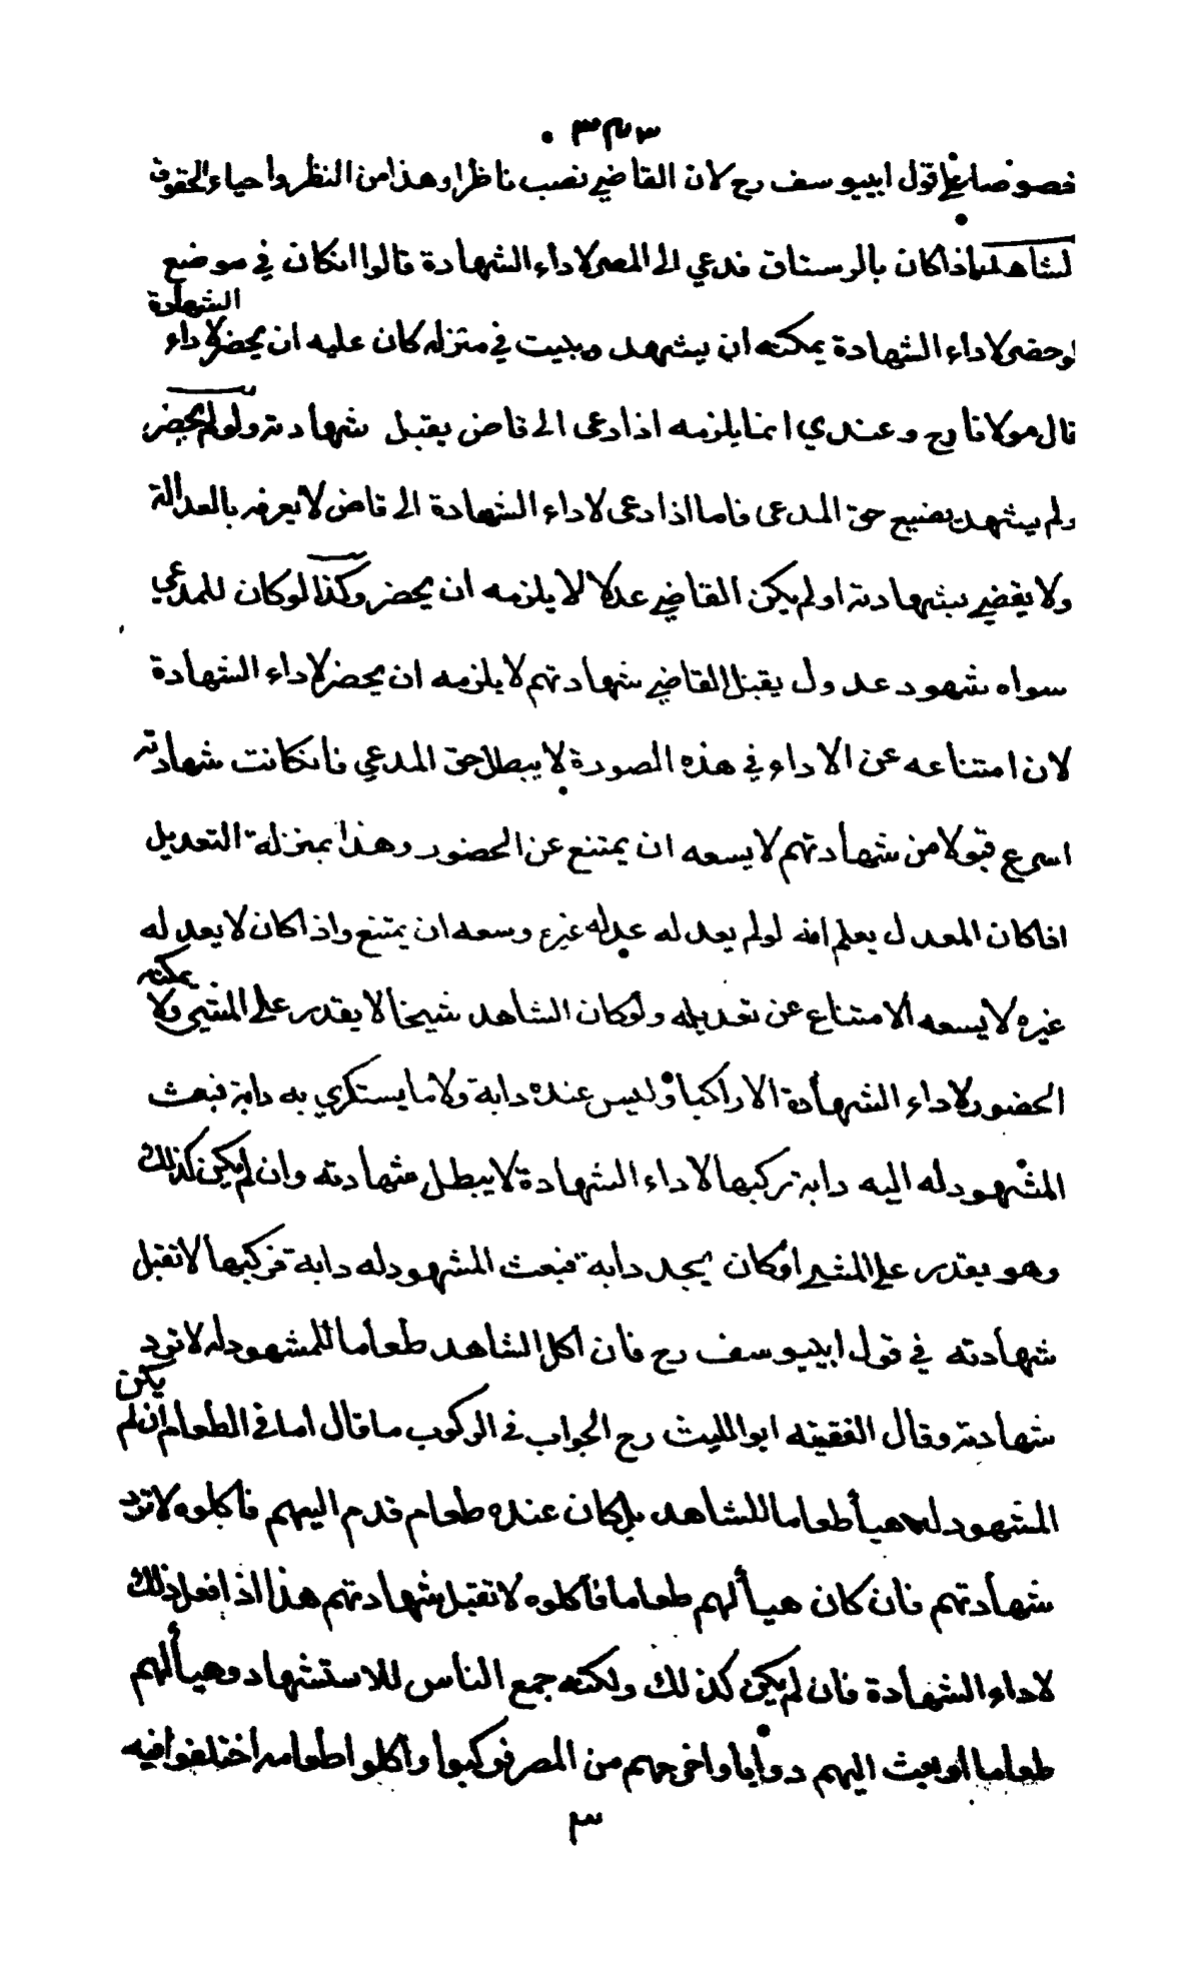 ٣٤٣
خصوصا على قول ابييوسف رح لان القاضي نصب ناظرا وهذا من النظر واحياء الحقوق
لشاهد اذا كان بالرستاق فدعي الى المصر لاداء الشهادة قالوا انكان في موضع
لو حضر لاداء الشهادة يمكنه ان يشهد ويبيت في منزله كان عليه ان يحضر لاداء الشهادة
قال مولانا رح وعندي انما يلزمه اذا دعى الى قاض يقبل شهادته ولو لم يحضر
ولم يشهد يضيع حق المدعى فاما اذا دعى لاداء الشهادة الى قاض لا يعرفه بالعدالة
ولا يقضي بشهادته او لم يكن القاضي عدلا لا يلزمه ان يحضر وكذا لو كان للمدعي
سواه شهود عدول يقبل القاضي شهادتهم لا يلزمه ان يحضر لاداء الشهادة
لان امتناعه عن الاداء في هذه الصورة لا يبطل حق المدعي فانكانت شهادته
اسرع قبولا من شهادتهم لا يسعه ان يمتنع عن الحضور وهذا بمنزلة التعديل
اذا كان المعدل يعلم انه لو لم يعدله عدله غيره وسعه ان يمتنع واذا كان لا يعدله
غيره لا يسعه الامتناع عن تعديله ولو كان الشاهد شيخا لا يقدر على المشي ولا يمكنه
الحضور لاداء الشهادة الا راكبا وليس عنده دابة ولا ما يستكري به دابة فبعث
المشهود له اليه دابة تركبها لاداء الشهادة لا يبطل شهادته وان لم يكن كذلك
وهو يقدر على المشي او كان يجد دابة فبعث المشهود له دابة فركبها لا تقبل
شهادته في قول ابييوسف رح فان اكل الشاهد طعاما للمشهود له لا ترد
شهادته وقال الفقيه ابو الليث رح الجواب في الركوب ما قال اما في الطعام ان لم يكن
المشهود له هيأ طعاما للشاهد بل كان عنده طعام قدم اليهم فأكلوه لا ترد
شهادتهم فان كان هيأ لهم طعاما فأكلوه لا تقبل شهادتهم هذا اذا فعل ذلك
لاداء الشهادة فان لم يكن كذلك ولكنه جمع الناس للاستشهاد وهيأ لهم
طعاما او بعث اليهم دوابا واخرجهم من المصر فركبوا واكلوا طعامه اختلفوا فيه
٣